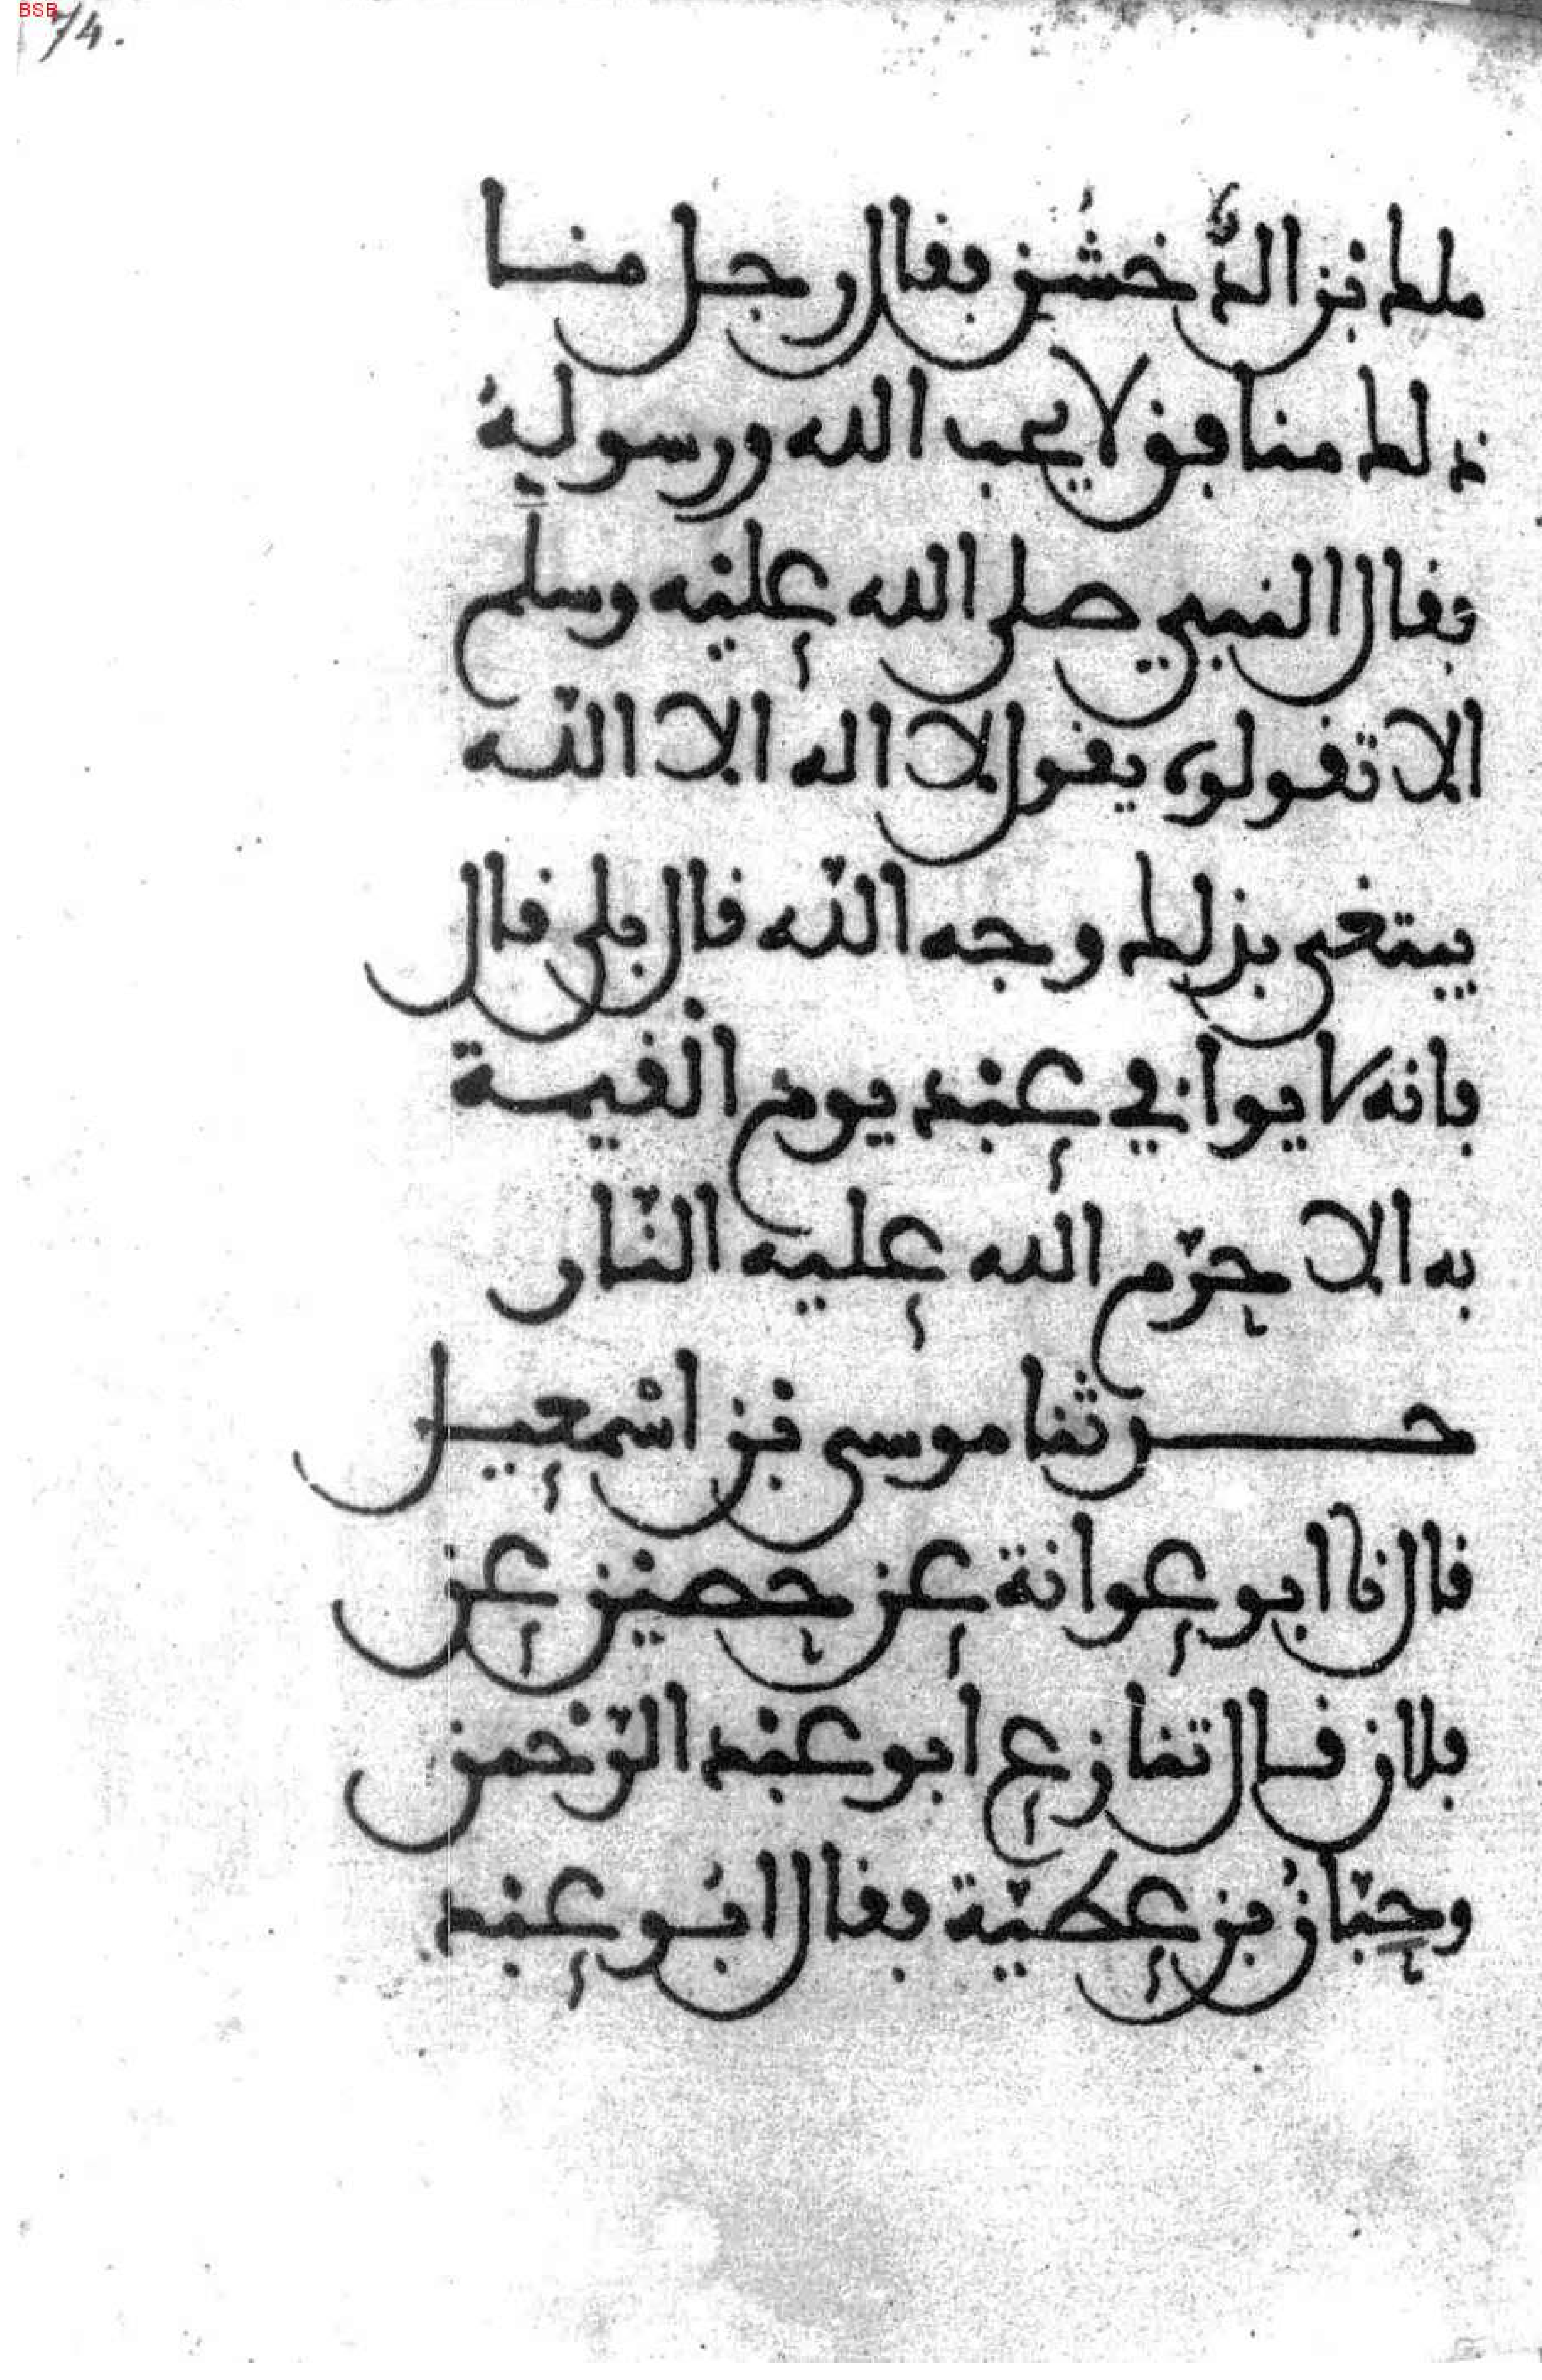 BSB
74.
ملك بن الدخشن فقال رجل منا
ذلك منافق لا يحب الله ورسوله
فقال النبي صلى الله عليه وسلم
الا تقولوه يقول لا اله الا الله
يبتغي بذلك وجه الله قال بلى قال
فانه لا يوافي عبد يوم القيمة
به الا حرّم الله عليه النّار
حدثنا موسى بن اسمعيل
قال نا ابو عوانة عن حصين عن
فلان قال تنازع ابو عبد الرّحمن
وحبّان بن عطيّة فقال ابو عبد